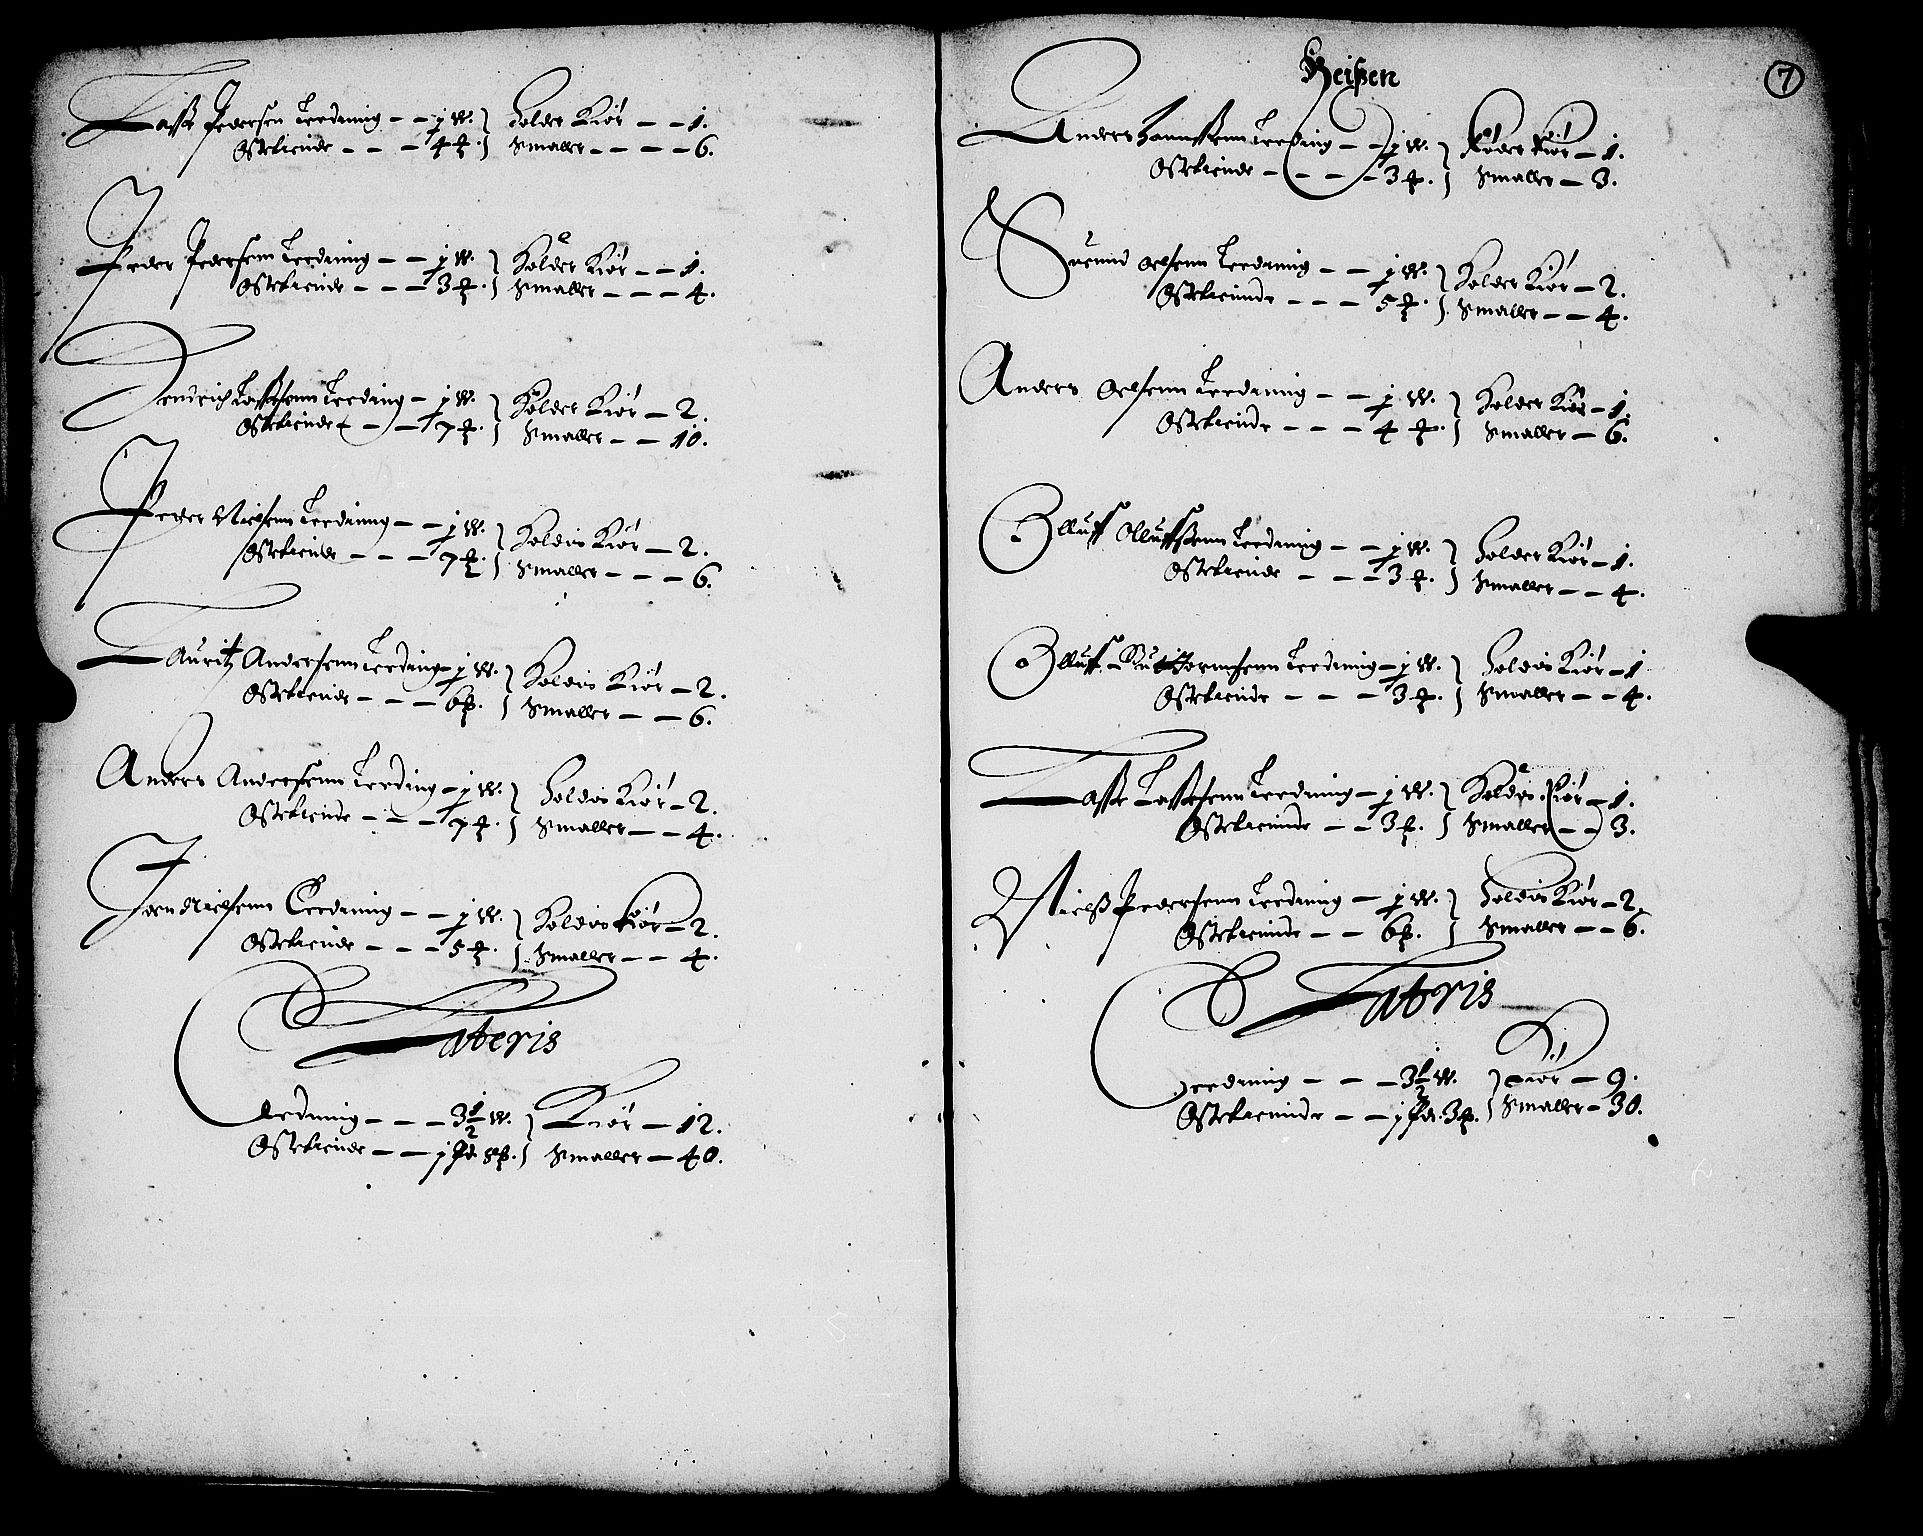 Lasse Pedersen Leeding - - j W. } Holder Kiør - - 1.
Ostetiende - - - 4 ₰. } Smaller - - - - 6.
Peder Pedersenn Leedning - - j W. } Holder Kiør - - 1.
Ostetiende - - - 3 ₰. } Smaller - - - 4.
Hendrich Lassesenn Leeding - j W. } Holder Kiør - 2.
Ostetiende - - - 7 ₰. } Smaller - - 10.
Peder Nielsenn Leedning - - j W. } Holdis Kiør - 2.
Ostetiende - - - 7 ₰. } Smaller - - - 6.
Lauritz Andersenn Leeding - j W. } Holdis Kiør - 2.
Ostetiende - - - 6 ₰. } Smaller - - 6.
Anders Andersenn Leeding - j W. } Holdis Kiør - 2.
Ostetiende - - - 7 ₰. } Smaller - - 4.
Joen Nielsenn Leedning - - j W. } Holdis Kiør - 2.
Ostetiende - - - 5 ₰. } Smaller - - 4.
Lateris
Ledning - - - 3 1/2 W. } Kiør - 12.
Ostetiende - - j 8 ₰. } Smaller - 40.
7
Heißen
Anders Leeding - - j W. } Føder Kiør - 1.
Ostetiende - - - - 3 ₰. } Smaller - 3.
Suend Oelsenn Leedning - - j W. } Holder Kiør - 2.
Ostetiende - - - 5 ₰. } Smaller - - 4.
Anders Oelsenn Leedning - - j W. } Holder Kiør - 1.
Ostetiende - - - 4 ₰. } Smaller - 6.
Olluff Olluffßenn Leedning - - j W. } Holder Kiør - 1.
Ostetiende - - - 3 ₰. } Smaller - - 4.
Olluff Leedning - j W. } Holdis Kiør - 1
Ostetiende - - - 3 ₰. } Smaller - - 4.
Lasse Lassesenn Leedning - j W. } Holdis Kiør - 1.
Ostetiende - - 3 ₰. } Smaller - - 3.
Nielß Pedersenn Leedning - j W. } Holdis Kiør - 2.
Ostetiende - - 6 ₰. } Smaller - - 6.
Latris
Leedning - - - 3 1/2 W. } Kiør - 9.
Ostetiende - - j 3 ₰. } Smaller - 30.